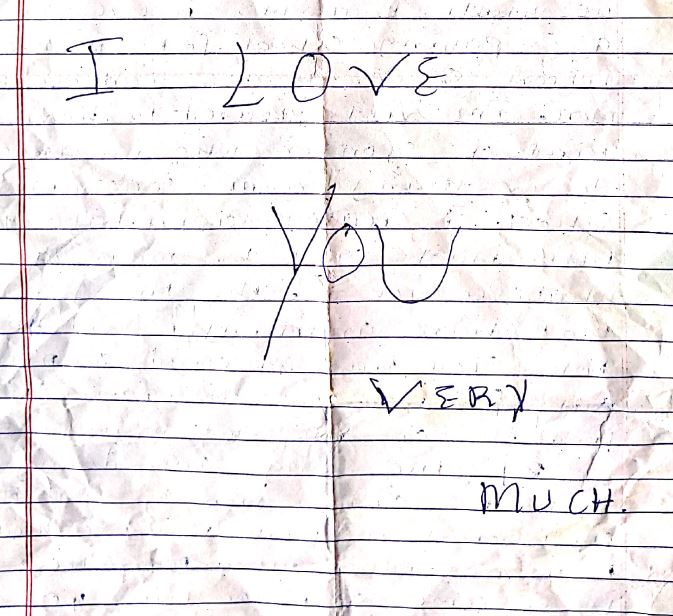 I LOVE
YOU
VERY
MUCH.